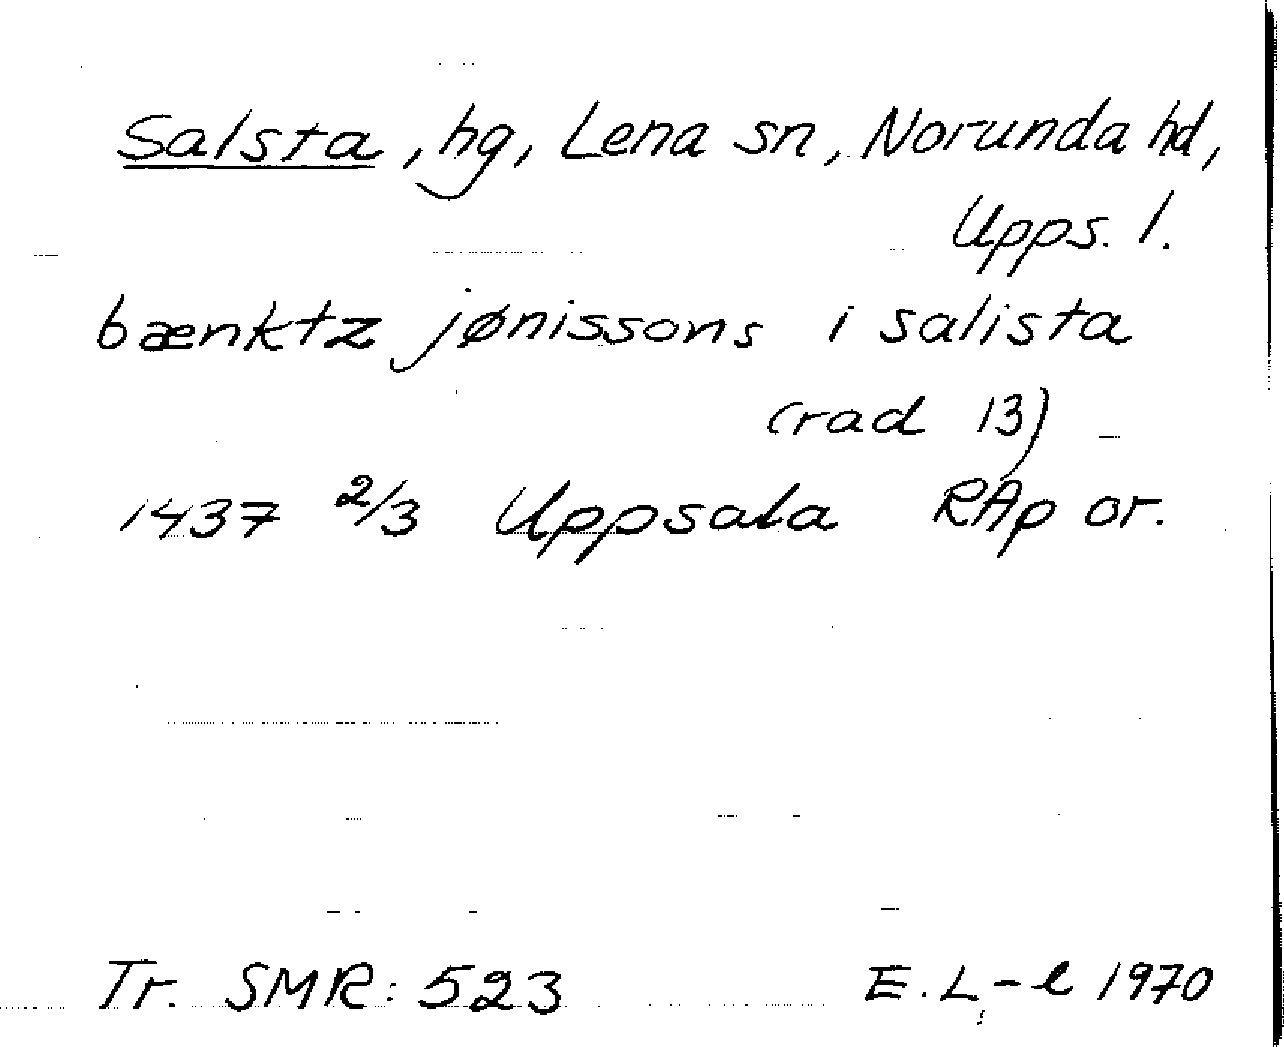 Salsta, hg, Lena sn, Norunda hd,
Upps. l.
bænktz jønissons i salista
(rad 13)
1437 2/3 Uppsala RAp or.
Tr. SMR: 523 E. L-l 1970